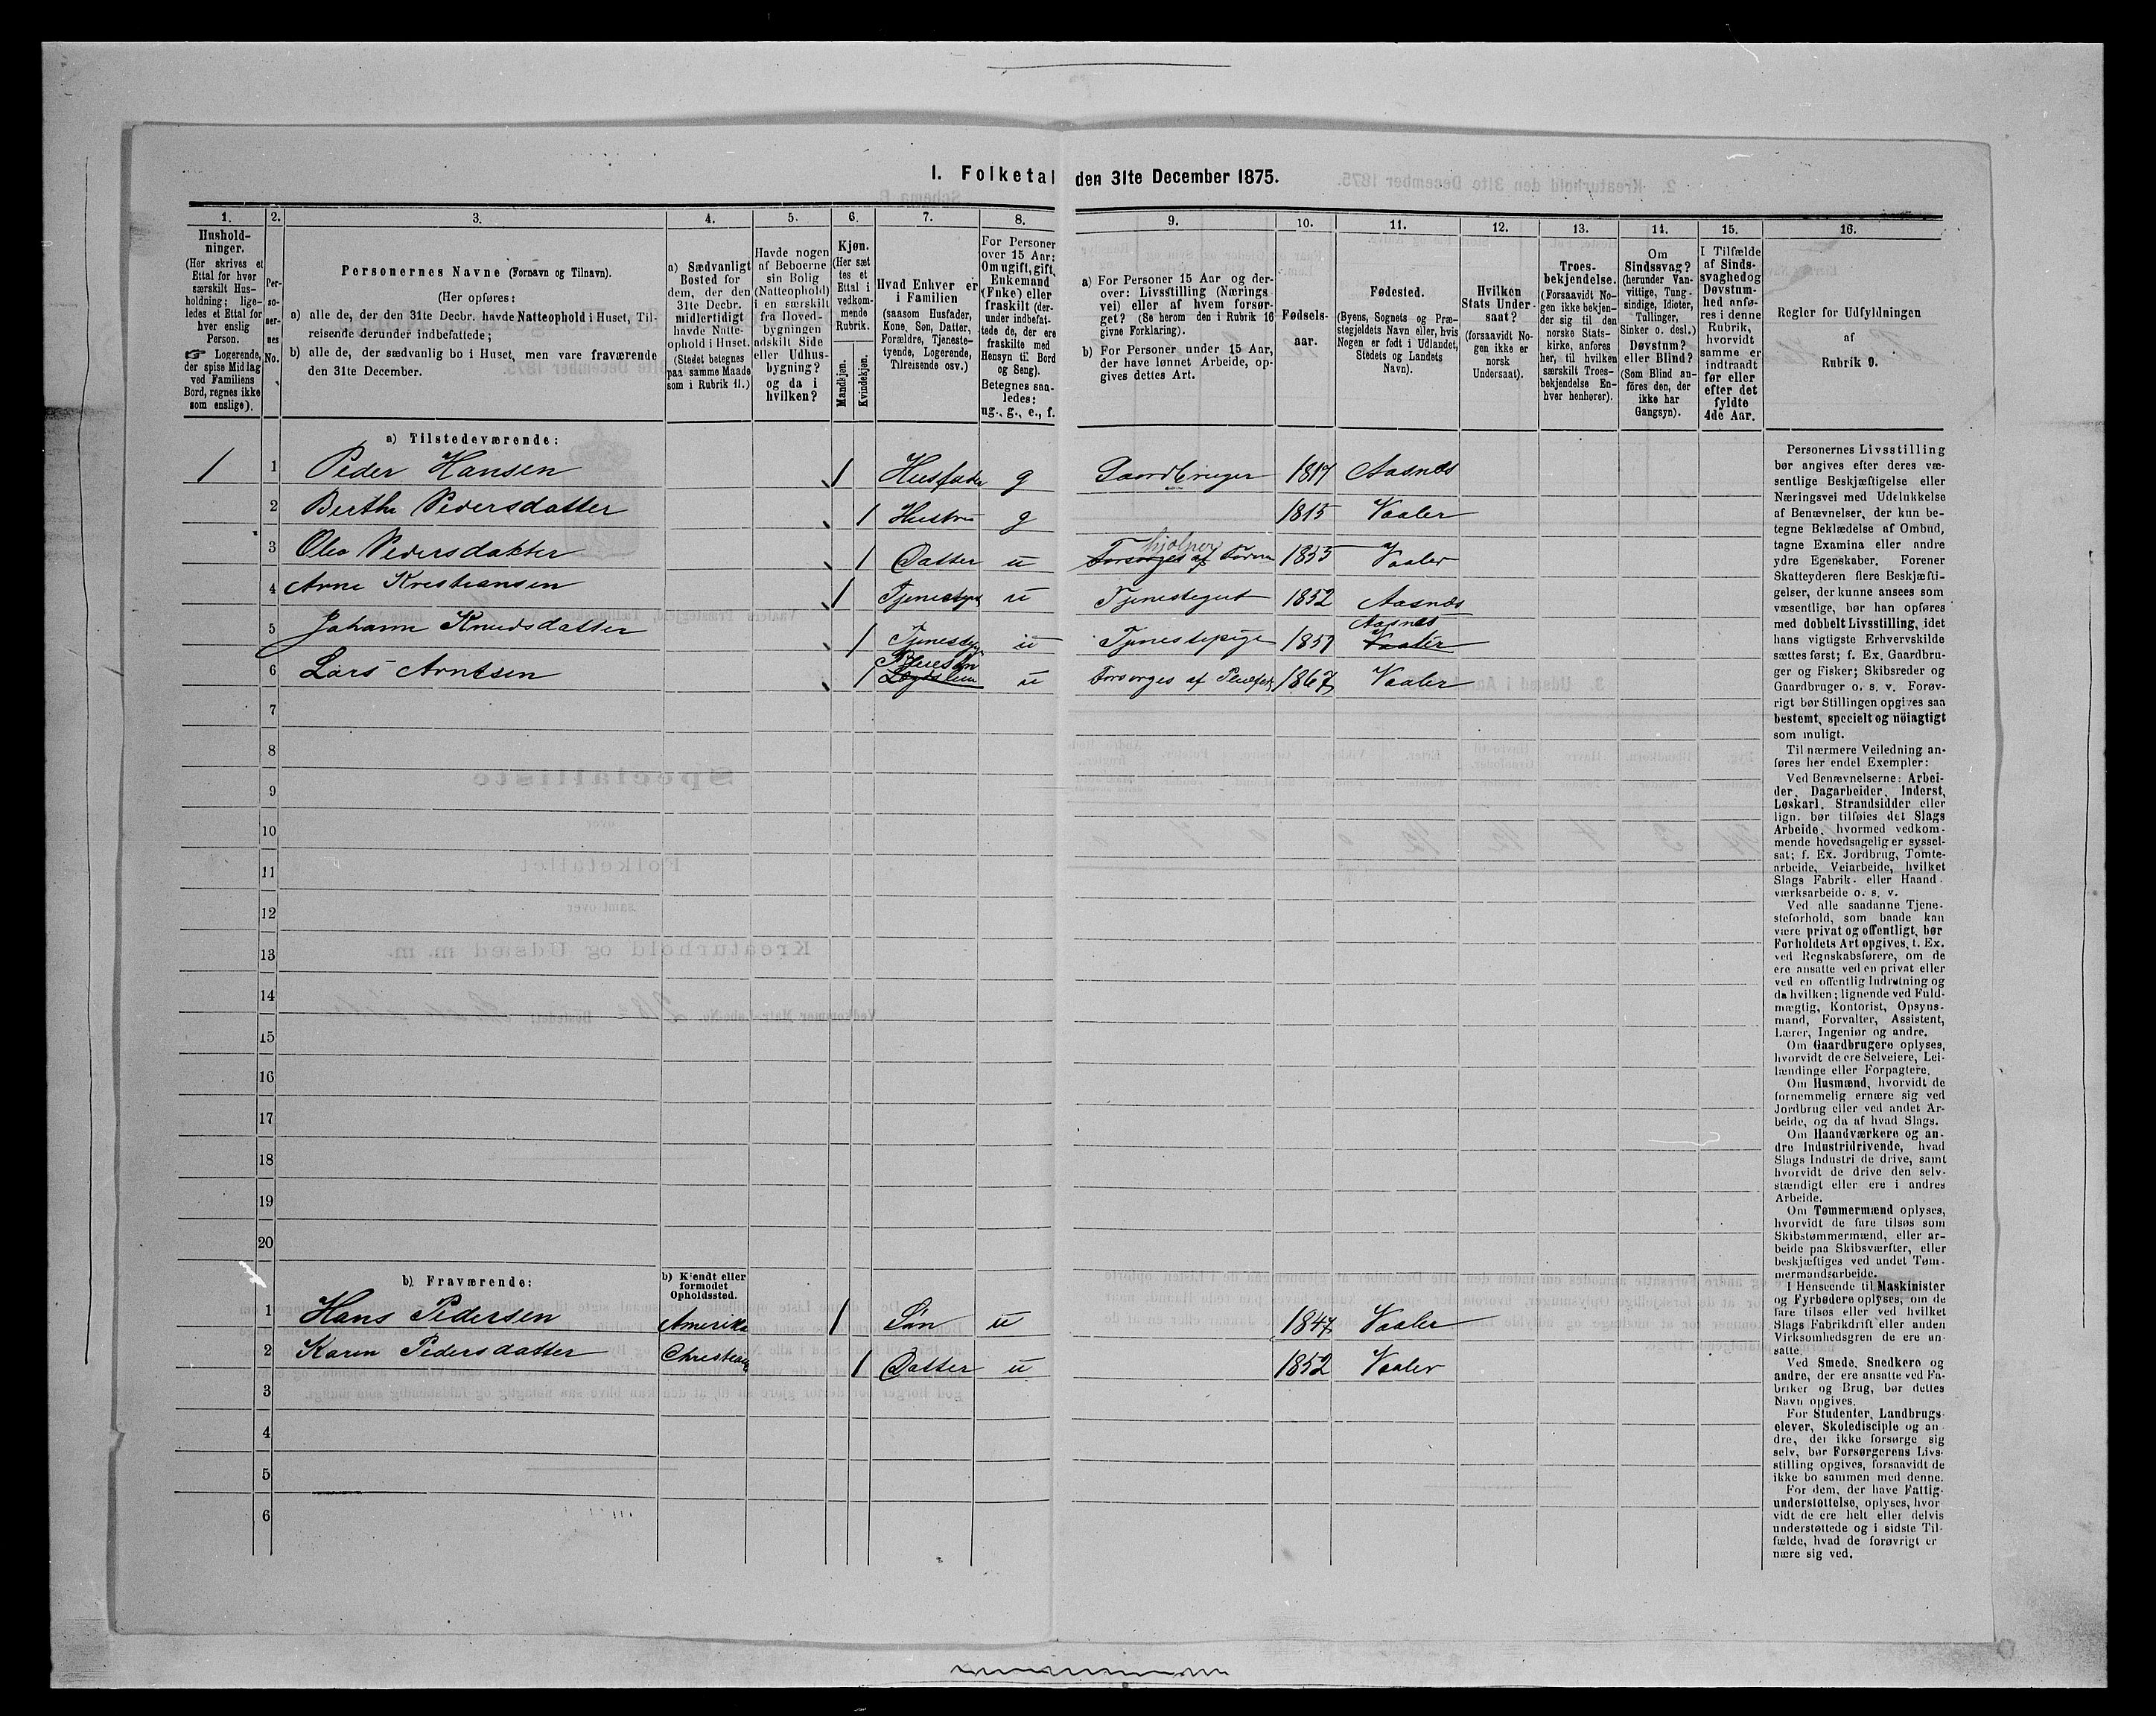 1. Folketal den 31te December 1875.
1.
2.
3.
4.
5.
6.
7.
8.
9.
10.
11.
12.
13.
14.
15.
16.
Hushold-
ninger.
(Her skrives et
Ettal for hver
særskilt Hus-
holdning; lige-
ledes et Ettal for
hver enslig
Person.
☞ Logerende,
der spise Middag
ved Familiens
Bord, regnes ikke
som enslige).
Per-
so-
ner-
nes
No.
Personernes Navne (Fornavn og Tilnavn).
(Her opføres:
a) alle de, der den 31te Decbr. havde Natteophold i Huset, Til-
reisende derunder indbefattede;
b) alle de, der sædvanlig bo i Huset, men vare fraværende
den 31te December.
a) Sædvanligt
Bosted for
dem, der den
31te Decbr.
midlertidigt
havde Natte-
ophold i Huset.
(Stedet betegnes
paa samme Maade
som i Rubrik 11.)
Havde nogen
af Beboerne
sin Bolig
(Natteophold)
i en særskilt
fra Hoved-
bygningen
adskilt Side
eller Udhus-
bygning?
og da i
hvilken?
Kjøn.
(Her sæt
tes et
Ettal i
vedkom-
mende
Rubrik.
Mandkjøn.
Kvindekjøn.
Hvad Enhver er
i Familien
(saasom Husfader,
Kone, Søn, Datter,
Forældre, Tjeneste-
tyende, Logerende,
Tilreisende osv.)
For Personer
over 15 Aar:
Om ugift, gift,
Enkemand
(Enke) eller
fraskilt (der-
under indbefat-
tede de, der ere
fraskilte med
Hensyn til Bord
og Seng).
Betegnes saa-
ledes:
ug., g., e., f.
a) For Personer 15 Aar og der-
over: Livsstilling (Nærings
vei) eller af hvem forsør-
get? (Se herom den i Rubrik 16
givne Forklaring).
b) For Personer under 15 Aar,
der have lønnet Arbeide, op-
gives dettes Art.
Fødsels-
aar.
Fødested.
(Byens, Sognets og Præ-
stegjeldets Navn eller, hvis
Nogen er født i Udlandet,
Stedets og Landets
Navn).
Hvilken
Stats Under-
saat?
(forsaavidt No-
gen ikke er
norsk
Undersaat).
Troes-
bekjendelse.
(Forsaavidt No-
gen ikke bekjen-
der sig til den
norske Stats-
kirke, anføres
her, til hvilken
særskilt Troes-
bekjendelse En-
hver henhører).
Om
Sindssvag?
(herunder Van-
vittige, Tung-
sindige, Idioter,
Tullinger,
Sinker o. desl.)
Døvstum?
eller Blind?
(Som Blind an-
föres den, der
ikke har
Gangsyn).
I Tilfælde
af Sinds-
svaghed og
Døvstum-
hed anfø-
res i denne
Rubrik,
hvorvidt
samme er
indtraadt
før eller
efter det
fyldte
4de Aar.
Regler for Udfyldningen
af
Rubrik 9.
a) Tilstedeværende:
1 1 Peder Hansen 1 Husfader g Gaardbruger 1817 Aasnes
2 Berthe Pedersdatter 1 Hustru g 1815 Vaaler
3 Olea Pedersdatter 1 Datter u Forsørges af hjelper Faderen 1853 Vaaler
4 Arne Kristiansen 1 u Tjenestegut 1852 Aasnes
5 Johanne Knudsdatter 1 u Tjenestepige 1857 Aasnes Vaaler
6 Lars Arntsen 1 Pleiesøn Lægdslem u Forsørges af 1867 Vaaler
7
8
9
10
11
12
13
14
15
16
17
18
19
20
b) Fraværende:
b) Kjendt eller
formodet
Opholdssted.
1 Hans Pedersen Amerika 1 Søn u 1847 Vaaler
2 Karen Pedersdatter Christiania 1 Datter u 1852 Vaaler
3
4
5
6
Personernes Livsstilling
bør angives efter deres væ-
sentlige Beskjæftigelse eller
Næringsvei med Udelukkelse
af Benævnelser, der kun be-
tegne Beklædelse af Ombud,
tagne Examina eller andre
ydre Egenskaber. Forener
Skatteyderen flere Beskjæfti-
gelser, der kunne ansees som
væsentlige, bør han opføres
med dobbelt Livsstilling, idet
hans vigtigste Erhvervskilde
sættes først; f. Ex. Gaardbru-
ger og Fisker; Skibsreder og
Gaardbruger o. s. v. Forøv-
rigt bør Stillingen opgives saa
bestemt, specielt og nöiagtigt
som muligt.
Til nærmere Veiledning an-
føres her endel Exempler:
Ved Benævnelserne: Arbei-
der, Dagarbeider, Inderst,
Løskarl, Strandsidder eller
lign. bør tilføies det Slags
Arbeide, hvormed vedkom-
mende hovedsagelig er syssel-
sat; f. Ex. Jordbrug, Tomte-
arbeide, Veiarbeide, hvilket
Slags Fabrik- eller Haand-
værksarbeide o. s. v.
Ved alle saadanne Tjene-
steforhold, som baade kan
være privat og offentligt, bør
Forholdets Art opgives, t. Ex.
ved Regnskabsførere, om de
ere ansatte ved en privat eller
ved en offentlig Indretning og
da hvilken; lignende ved Fuld-
mægtig, Kontorist, Opsyns-
mand, Forvalter, Assistent,
Lærer, Ingeniør og andre.
Om Gaardbrugere oplyses,
hvorvidt de ere Selveiere, Lei-
lændinge eller Forpagtere.
Om Husmænd, hvorvidt de
fornemmelig ernære sig ved
Jordbrug eller ved andet Ar-
beide, og da af hvad Slags.
Om Haandværkere og an-
dre Industridrivende, hvad
Slags Industri de drive, samt
hvorvidt de drive den selv-
stændigt eller ere i andres
Arbeide.
Om Tømmermænd oplyses,
hvorvidt de fare tilsøs som
Skibstømmermænd, eller ar-
beide paa Skibsværfter, eller
beskjæftiges ved andet Tøm-
mermandsarbeide.
I Henseende til Maskinister
og Fyrbødere oplyses, om de
fare tilsøs eller ved hvilket
Slags Fabrikdrift eller anden
Virksomhedsgren de ere an-
satte.
Ved Smede, Snedkere og
andre, der ere ansatte ved Fa-
briker og Brug, bør dettes
Navn opgives.
For Studenter, Landbrugs-
elever, Skoledisciple og an-
dre, der ikke forsørge sig
selv, bør Forsørgerens Livs-
stilling opgives, forsaavidt de
ikke bo sammen med denne.
For dem, der have Fattig-
understøttelse, oplyses, hvor-
vidt de ere helt eller delvis
understøttede og i sidste Til-
fælde, hvad de forøvrigt er-
nære sig ved.